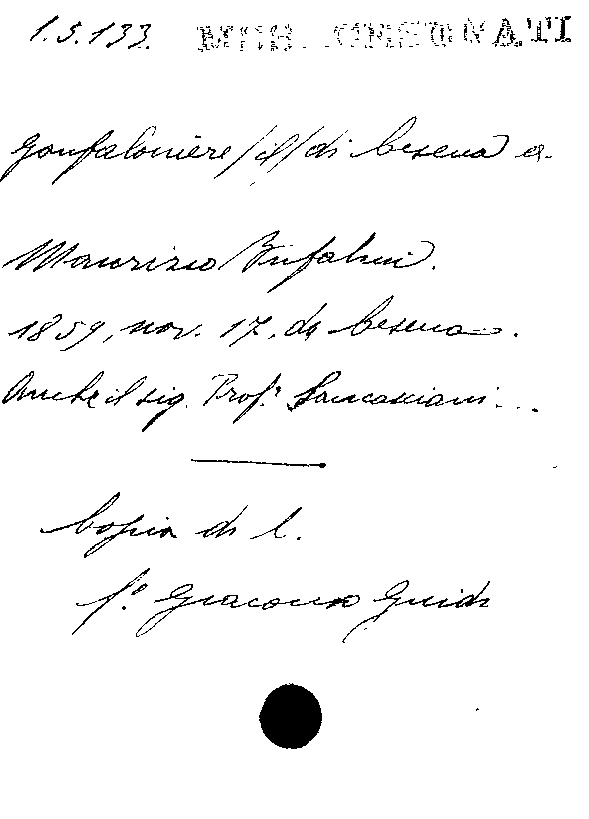 1.5.133. MSS. CESENATI
Gonfaloniere /il/ di Cesena a
Maurizio Bufalini.
1859, nov. 17, da Cesena.
Anche il sig. Prof.r Sancassiani...
Copia di l.
f.o Giacomo Guidi